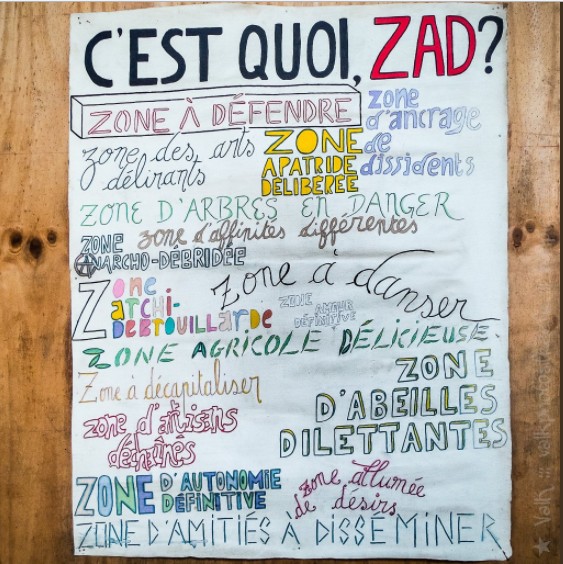 C'EST QUOI, ZAD?
ZONE À DÉFENDRE
zone
d'ancrage
de
dissidents
zone des arts
délirants
ZONE
APATRIDE
DÉLIBÉRÉE
ZONE D'ARBRES EN DANGER
zone d'affinités différentes
ZONE
ANARCHO-DÉBRIDÉE
zone à danser
Zone
archi-
debrouillarde
ZONE
AMOUR
DÉFINITIVE
ZONE AGRICOLE DÉLICIEUSE
Zone à décapitaliser
ZONE
D'ABEILLES
DILETTANTES
zone d'artisans
déchaînés
ZONE D'AUTONOMIE
DÉFINITIVE
zone allumée
de désirs
ZONE D'AMITIÉS À DISSÉMINER